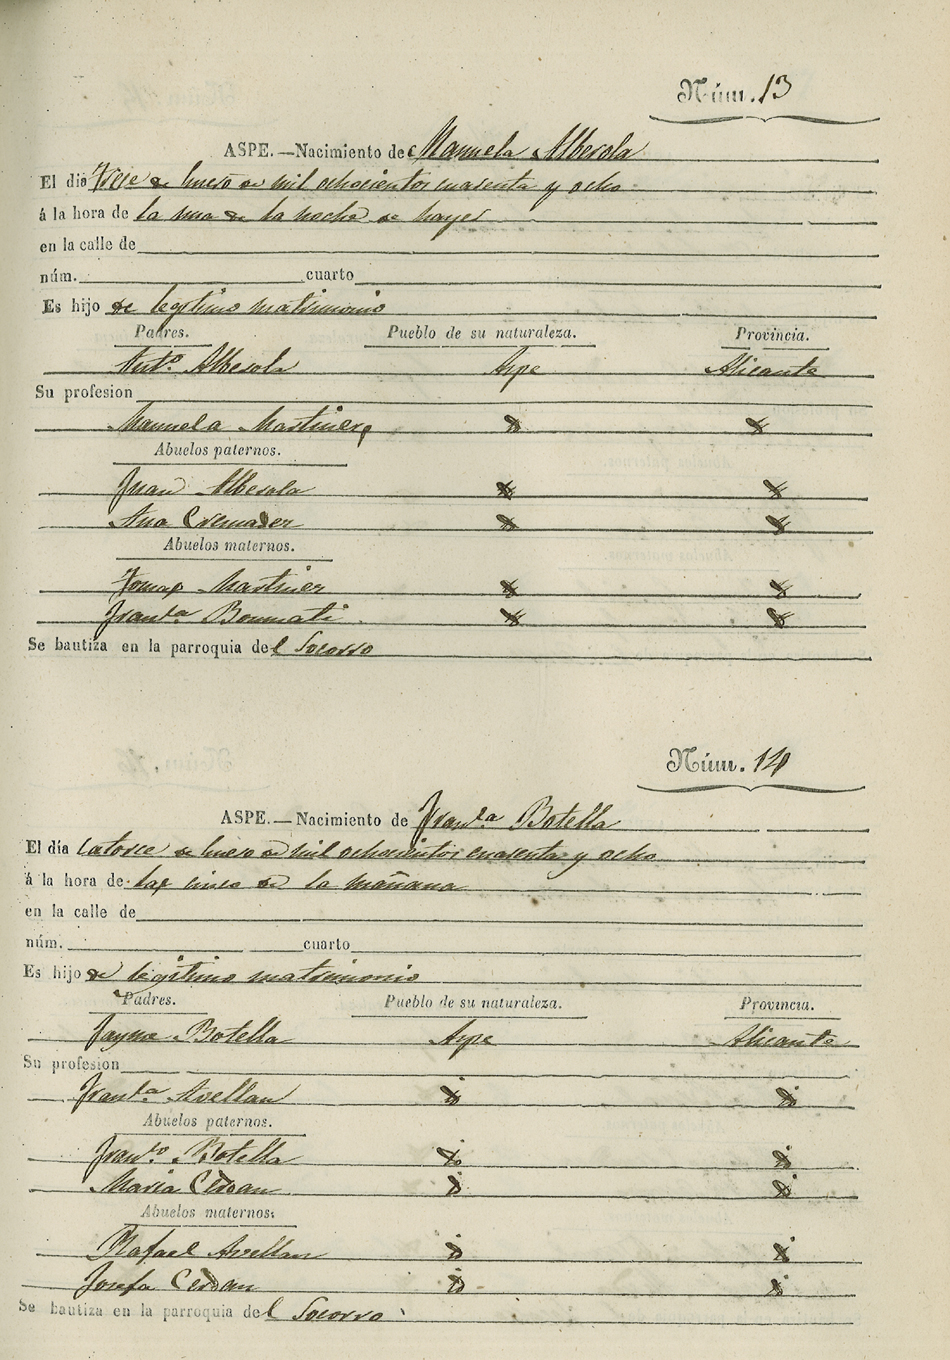 Núm. 13
ASPE.—Nacimiento de Manuela Alberola
El dia Trese de Enero de mil ochocientos cuarenta y ocho
á la hora de la una de la noche de hayer
en la calle de
núm. cuarto
Es hijo de legitimo matrimonio
Padres. Pueblo de su naturaleza. Provincia.
Antº. Alberola Aspe Alicante
Su profesion
Manuela Martines
Abuelos paternos.
Juan Alberola
Ana Cremades
Abuelos maternos.
Tomas Martines
Franca Bonmati
Se bautiza en la parroquia del Socorro
Núm. 14
ASPE.—Nacimiento de Franca Botella
El día Catorce de Enero de mil ochocientos cuarenta y ocho
á la hora de las cinco de la mañana
en la calle de
núm. cuarto
Es hijo de legitimo matrimonio
Padres. Pueblo de su naturaleza. Provincia.
Jayme Botella Aspe Alicante
Su profesion
Franca Avellan
Abuelos paternos.
Franco Botella
Maria Cerdan
Abuelos maternos.
Rafael Avellan
Josefa Cerdan
Se bautiza en la parroquia del Socorro